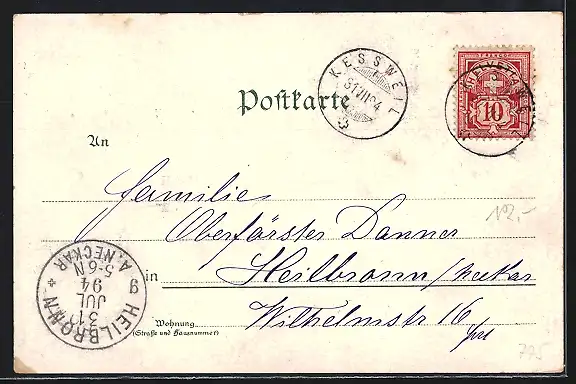 KESSWEIL
31 VII 94
HELVETIA
FRANCO
10
Postkarte
An
Familie
Oberförster Danner
in Heilbronn / Neckar
Wohnung Wilhelmstr 16
(Straße und Hausnummer)
12,-
775
HEILBRONN
A. NECKAR
31
JUL
94
5-6N